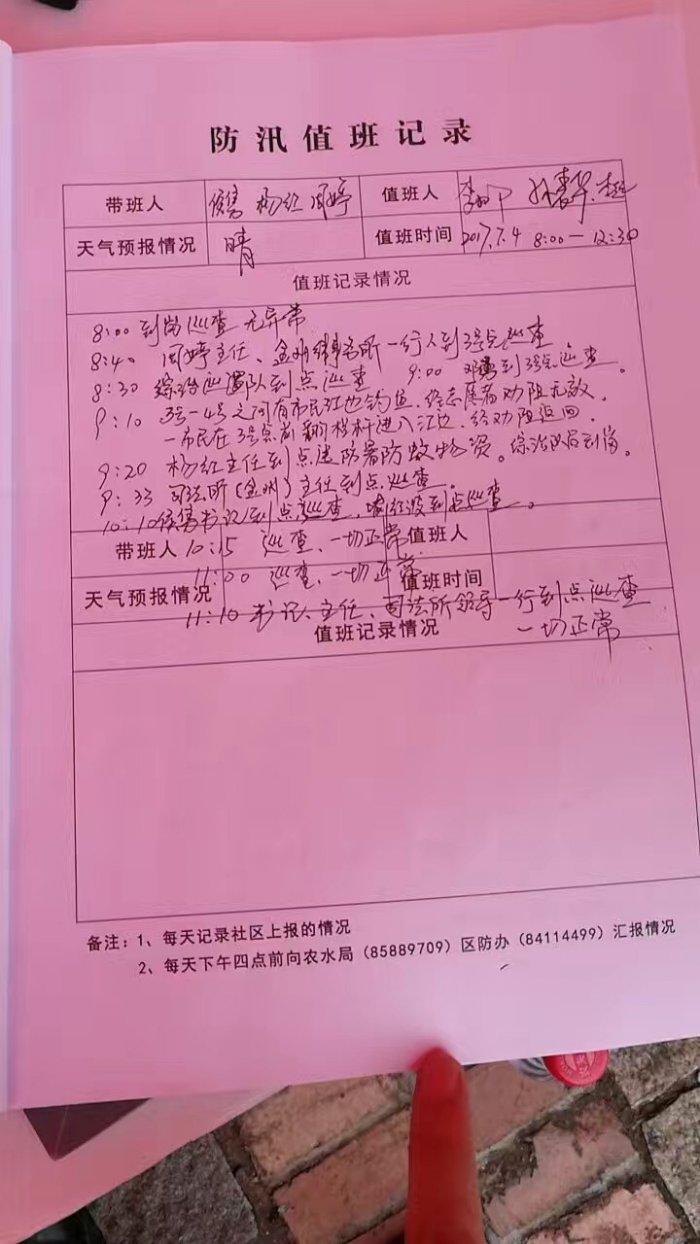 防汛值班记录
带班人 杨红 周婷 值班人
天气预报情况 晴 值班时间 2017.7.4 8:00—12:30
值班记录情况
8:00 到岗巡查 无异常
8:40 周婷主任、金州 所一行人到3号点巡查
8:30 综治巡逻队到点巡查 9:00 到3号点巡查。
9:10 3号—4号之间有市民江边钓鱼,经志愿者劝阻无效。
一市民在3号点前翻栏杆进入江边,经劝阻返回。
9:20 杨红主任到点送防暑防蚊物资。综治队员到岗。
9:33 司法所(金州)主任到点巡查。
10:10 书记到点巡查, 到点巡查。
带班人 10:15 巡查、一切正常 值班人
11:00 巡查、一切正常
天气预报情况 值班时间
11:10 书记、主任、司法所领导一行到点巡查
值班记录情况 一切正常
备注:1、每天记录社区上报的情况
2、每天下午四点前向农水局(85889709)区防办(84114499)汇报情况